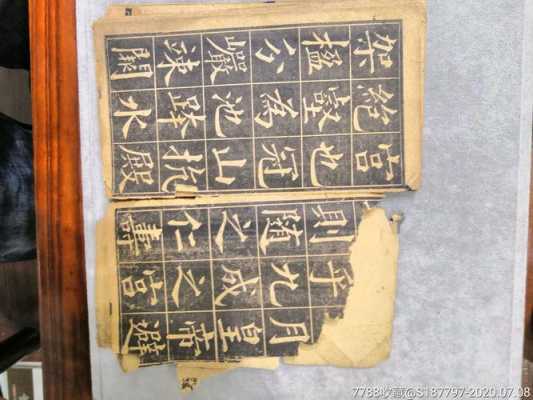 月皇帝避
乎九成之宮
則隨之仁壽
宮也冠山抗殿
絕壑為池跨水
架楹分巖竦闕
7788收藏@S187797-2020.07.08